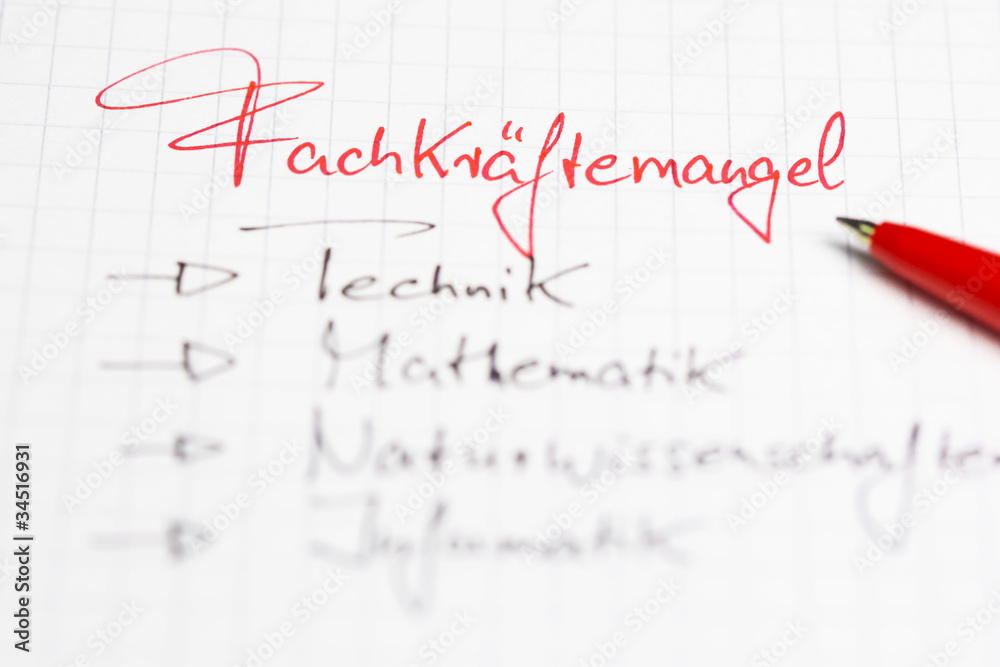 Fachkräftemangel
Technik
Mathematik
Naturwissenschaften
Informatik
Adobe Stock | #34516931